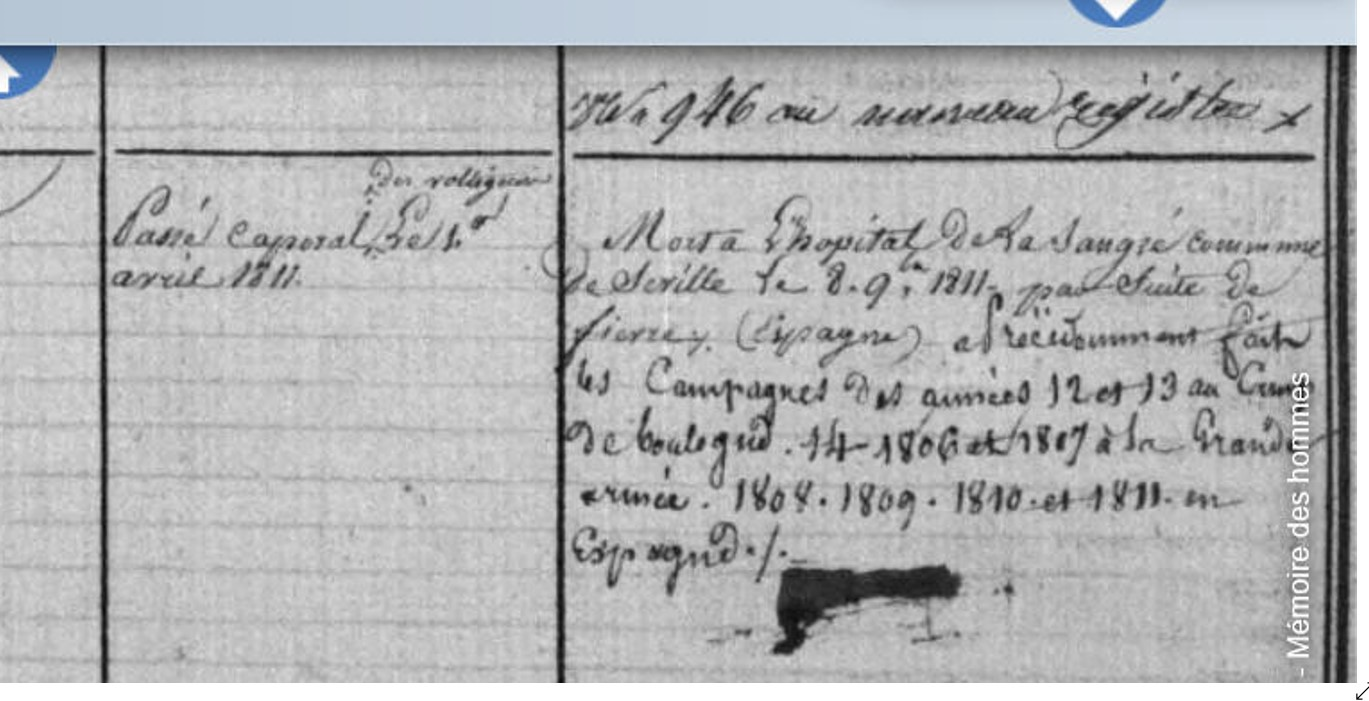 946 au nouveau registre
des voltigeurs
Passé Caporal, Le 1er
avril 1811.
Mort a L'hopital De La Sangre commune
de Seville le 8. 9.re 1811. par Suite de
fievre. (Espagne) a Précédemment fait
les Campagnes des années 12 et 13 au Camp
De boulogne. 14-1806 et 1807 à la Grande
armée. 1808. 1809. 1810. et 1811. en
Espagne ./.
- Mémoire des hommes